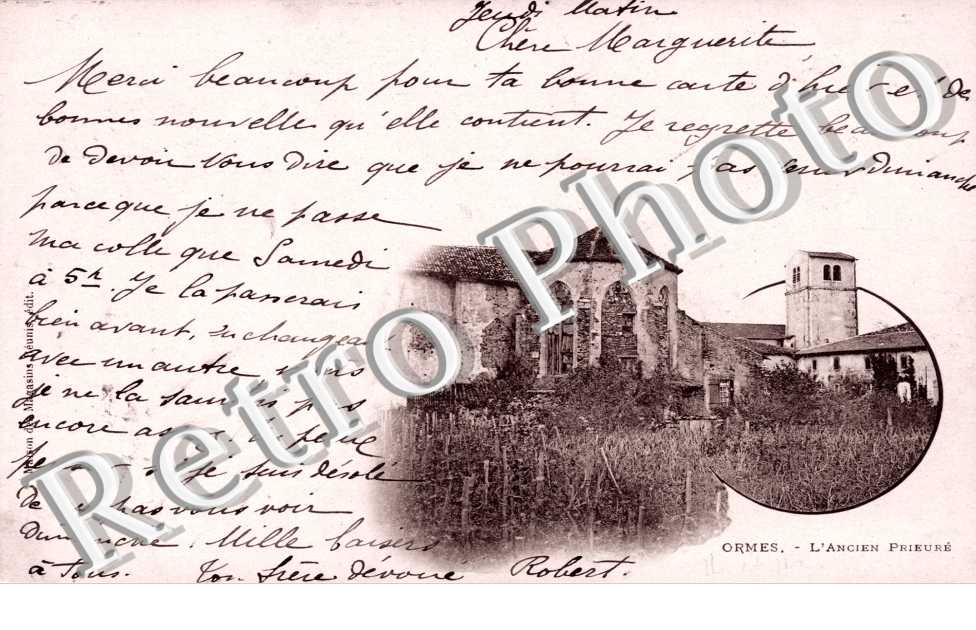 Jeudi Matin
Chère Marguerite
Merci beaucoup pour ta bonne carte d'hier et de
bonnes nouvelle qu'elle contient. Je regrette beaucoup
de devoir vous dire que je ne pourrai pas venir dimanche
parceque je ne passe
ma colle que Samedi
à 5h. Je la passerais
bien avant, en changeant
avec un autre mais
je ne la saurais pas
encore
je suis désolé
de pas vous voir
dimanche. Mille baisers
à tous. Ton frère dévoué Robert.
Réunis, édit.
ORMES. - L'ANCIEN PRIEURÉ
Retro Photo